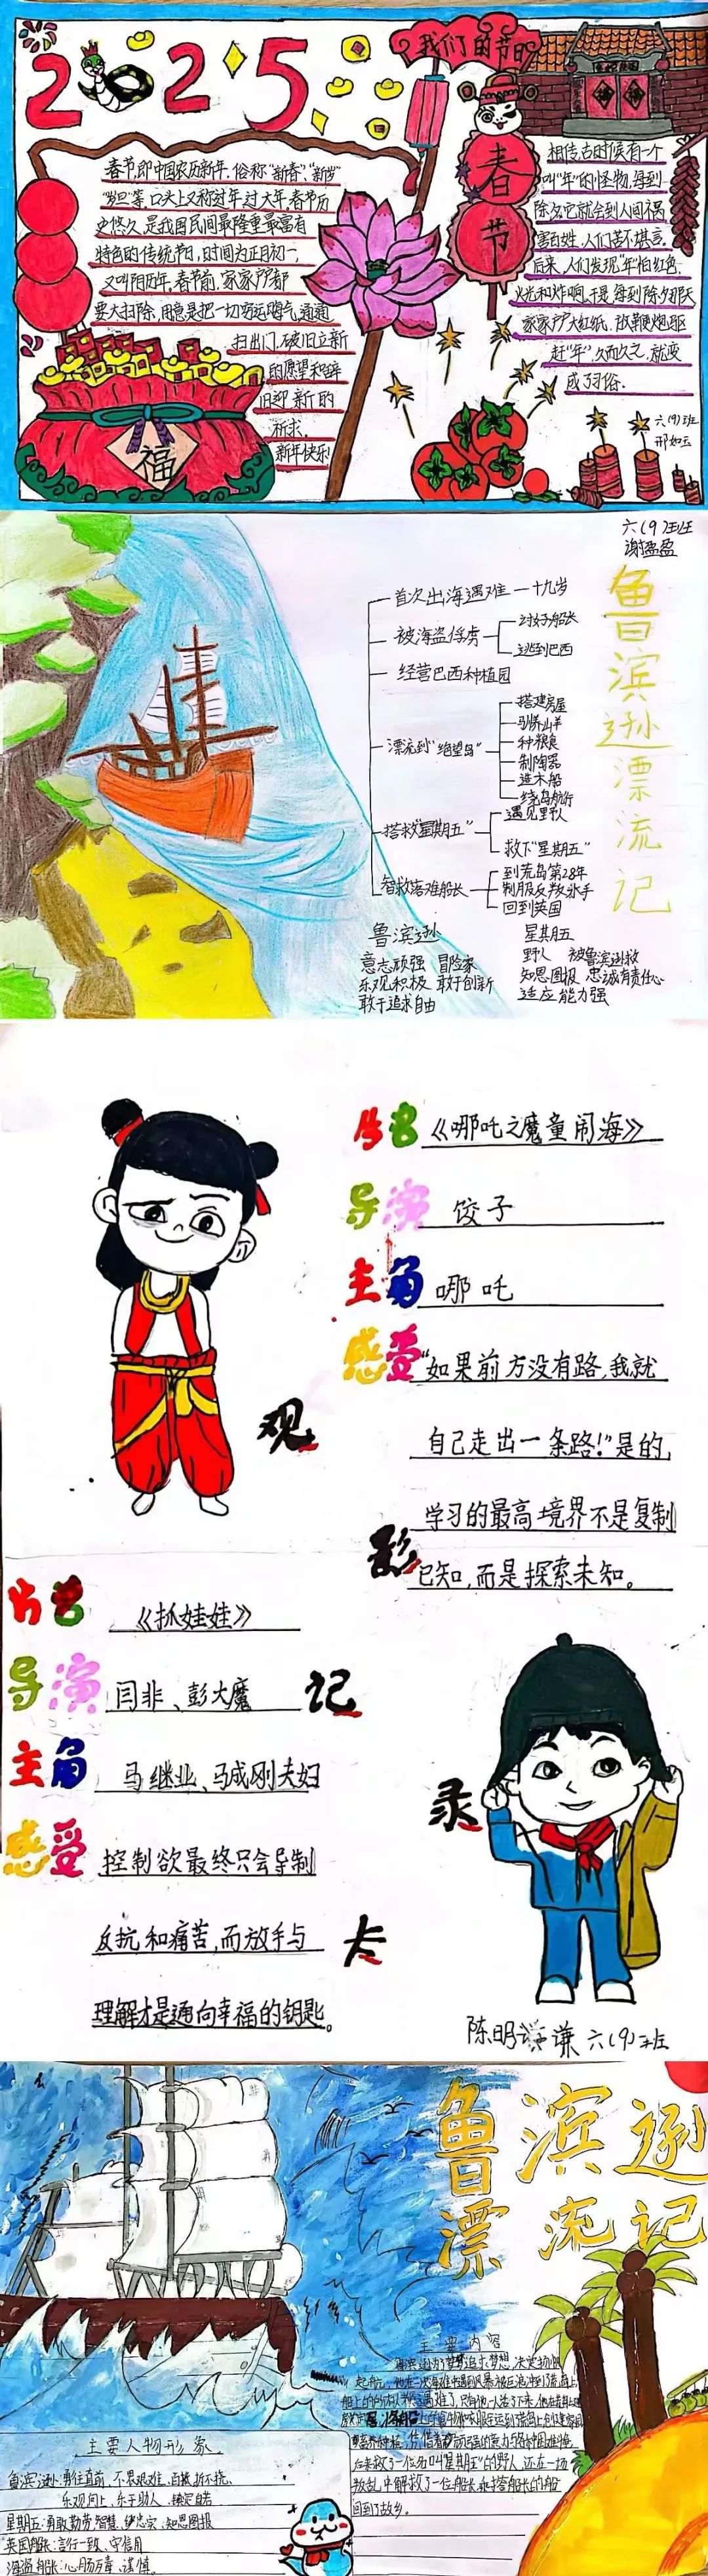 2025
我们的节日
春节即中国农历新年,俗称“新春”、“新岁”
“岁旦”等,口头上又称过年、过大年,春节历
史悠久,是我国民间最隆重最富有
特色的传统节,时间为正月初一,
又叫阴历年,春节前,家家户户都
要大扫除,用意是把一切穷运晦气,通通
扫出门,破旧立新
的愿望和辞
旧迎新的
祈求.
新年快乐!
福
春
节
相传,古时候有一个
叫“年”的怪物,每到
除夕,它就会到人间祸
害百姓,人们苦不堪言.
后来,人们发现“年”怕红色、
火光和炸响,于是,每到除夕那天
家家户户大红纸、放鞭炮,驱
赶“年”,久而久之,就变
成了习俗.
六(9)班
邢如云
六(9)班
谢盈盈
鲁滨逊漂流记
首次出海遇难—十九岁
被海盗俘虏
讨好船长
逃到巴西
经营巴西种植园
漂流到“绝望岛”
搭建房屋
驯养山羊
种粮食
制陶器
造木船
绕岛航行
搭救“星期五”
遇见野人
救下“星期五”
智救落难船长
到荒岛第28年
制服反叛水手
回到英国
鲁滨逊
意志顽强 冒险家
乐观积极 敢于创新
敢于追求自由
星期五
野人 被鲁滨逊救
知恩图报 忠诚有责任心
适应能力强
片名 《哪吒之魔童闹海》
导演 饺子
主角 哪吒
感受 “如果前方没有路,我就
自己走出一条路!”是的,
学习的最高境界不是复制
已知,而是探索未知。
观
影
记
录
卡
片名 《抓娃娃》
导演 闫非、彭大魔
主角 马继业、马成刚夫妇
感受 控制欲最终只会导制
反抗和痛苦,而放手与
理解才是通向幸福的钥匙。
陈明谦 六(9)班
鲁滨逊
漂流记
主要内容
后来救了一位名叫“星期五”的野人,还在一场
叛乱中解救了一位船长,乘搭船长的船
回到了故乡。
主要人物形象
鲁滨逊:勇往直前,不畏艰难,百折不挠,
乐观向上,乐于助人
星期五:勇敢勤劳,智慧,忠实,知恩图报
英国船长:言行一致、守信用